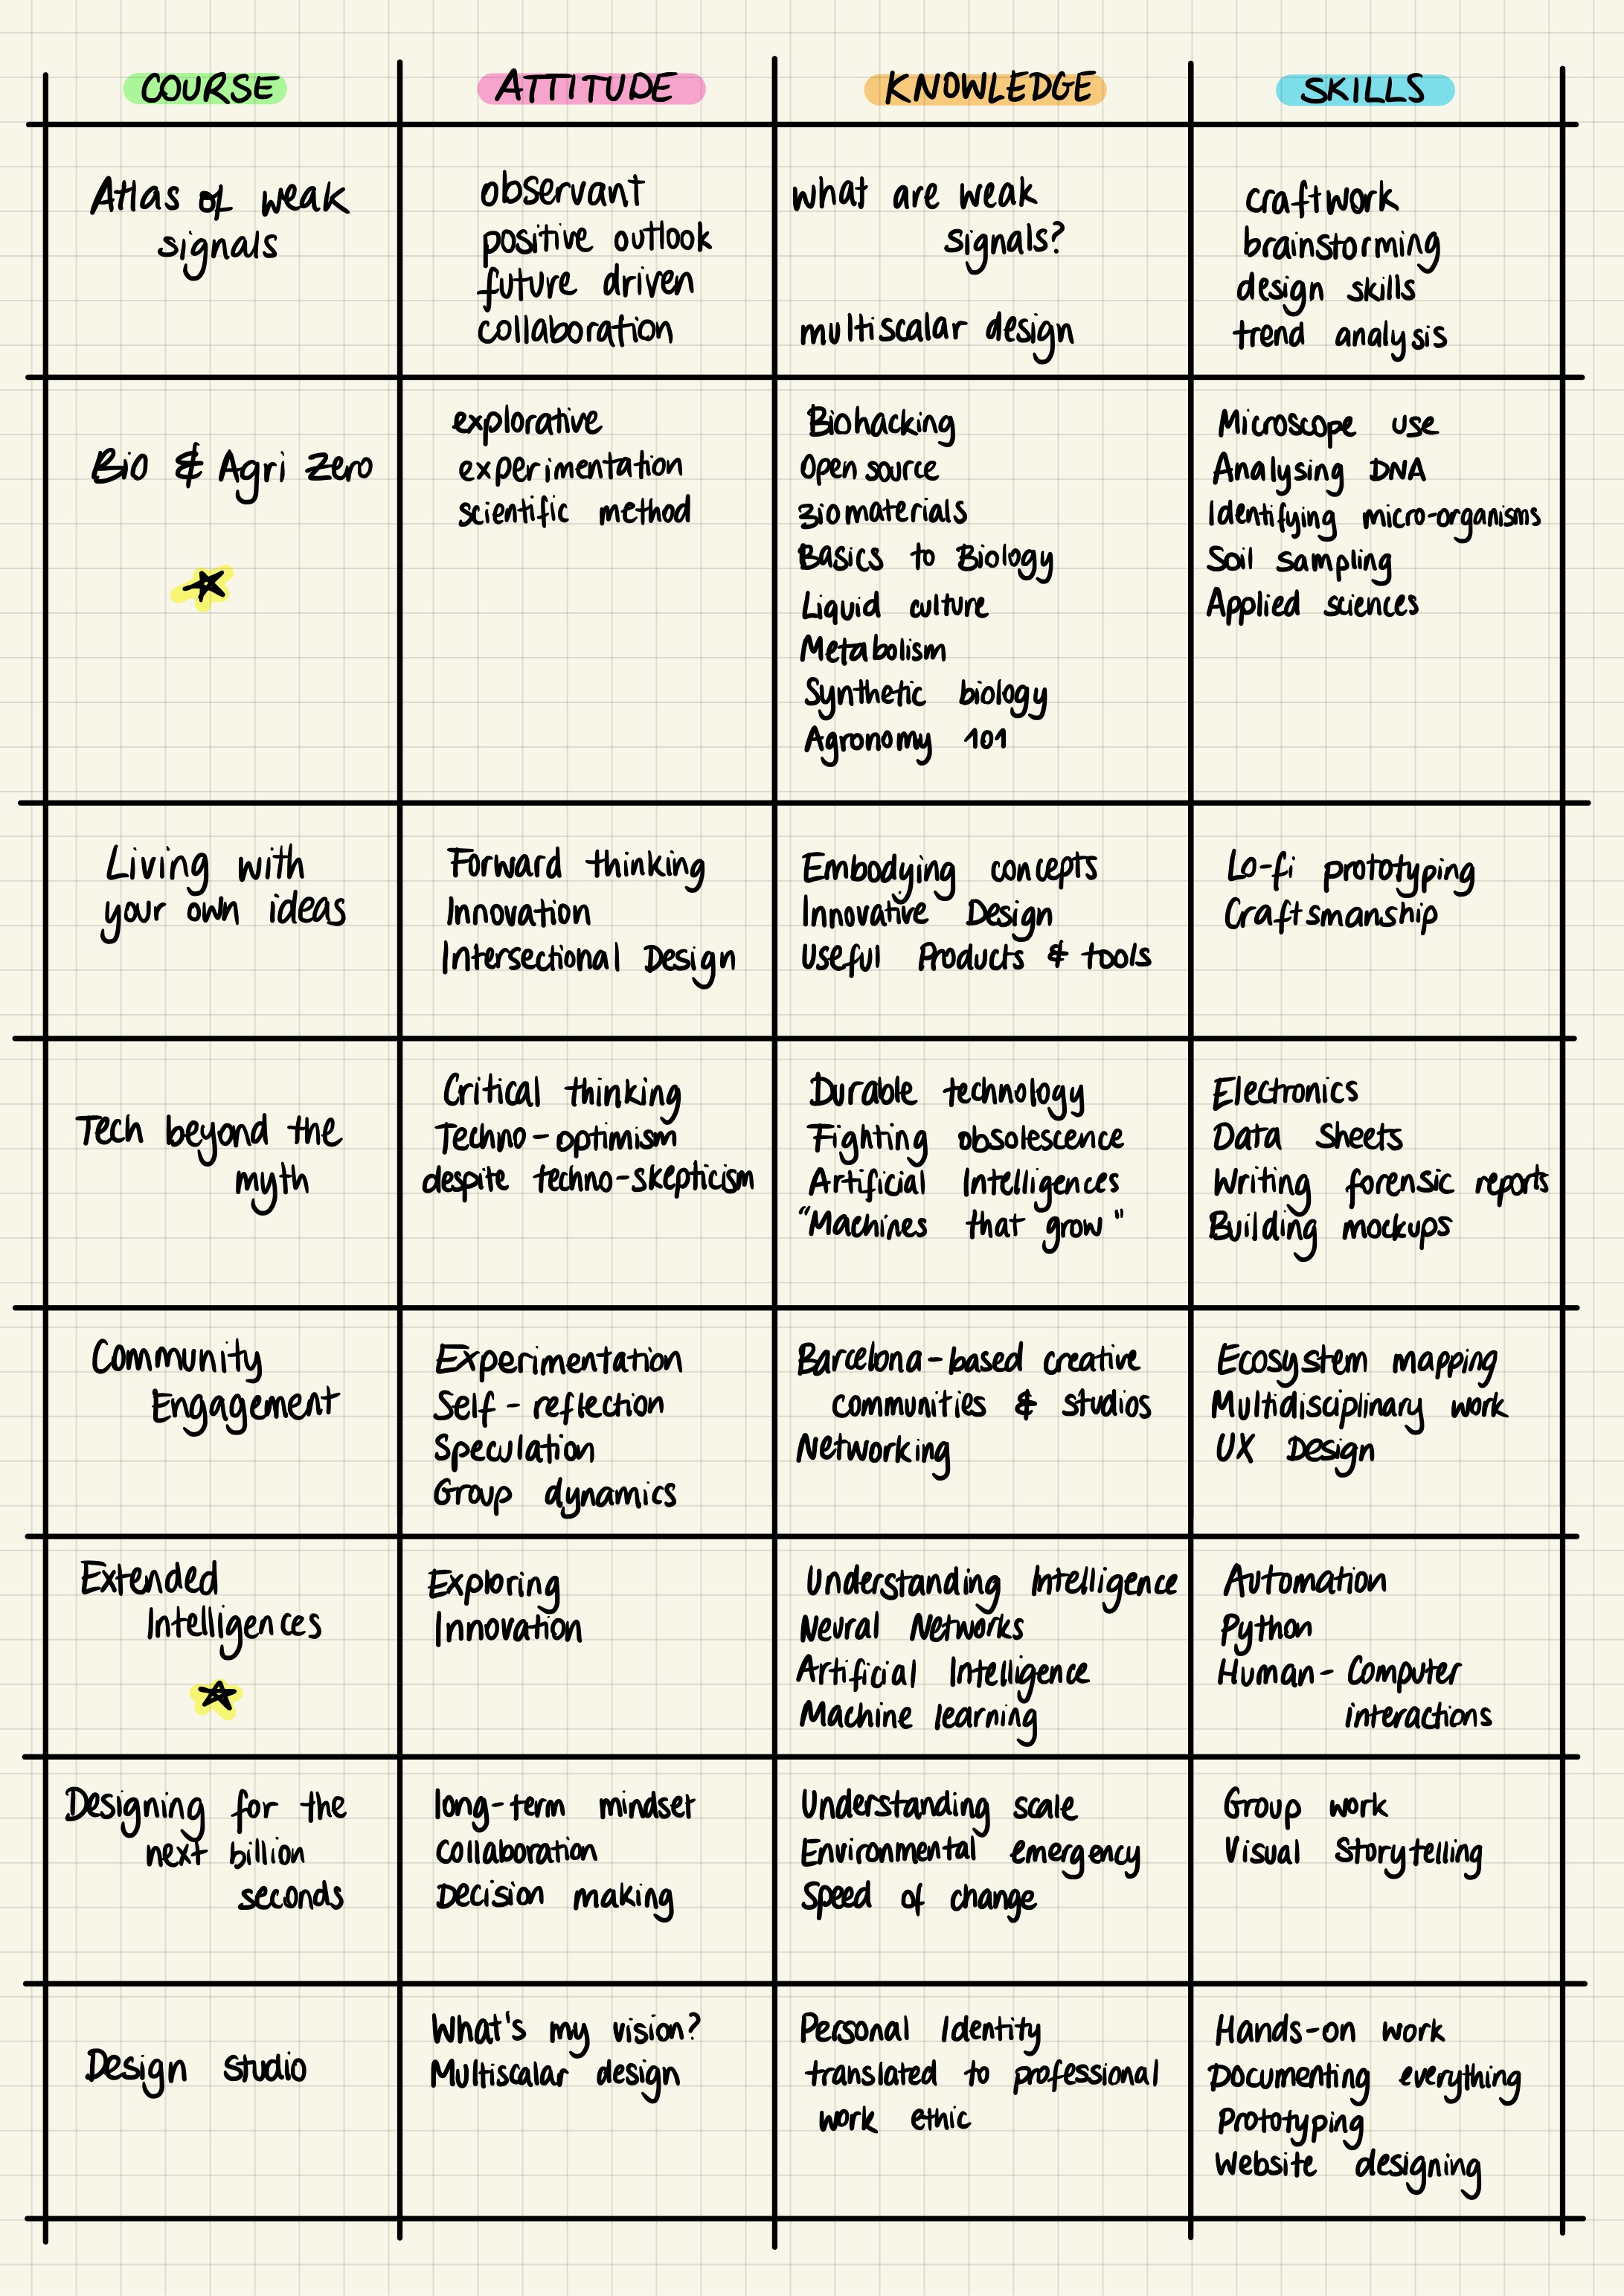 COURSE
ATTITUDE
KNOWLEDGE
SKILLS
Atlas of weak
signals
observant
positive outlook
future driven
collaboration
what are weak
signals?
multiscalar design
craftwork
brainstorming
design skills
trend analysis
Bio & Agri Zero
explorative
experimentation
scientific method
Biohacking
Open source
Biomaterials
Basics to Biology
Liquid culture
Metabolism
Synthetic biology
Agronomy 101
Microscope use
Analysing DNA
Identifying micro-organisms
Soil sampling
Applied sciences
Living with
your own ideas
Forward thinking
Innovation
Intersectional Design
Embodying concepts
Innovative Design
Useful Products & tools
Lo-fi prototyping
Craftsmanship
Tech beyond the
myth
Critical thinking
Techno-optimism
despite techno-skepticism
Durable technology
Fighting obsolescence
Artificial Intelligences
"Machines that grow"
Electronics
Data Sheets
Writing forensic reports
Building mockups
Community
Engagement
Experimentation
Self-reflection
Speculation
Group dynamics
Barcelona-based creative
communities & studios
Networking
Ecosystem mapping
Multidisciplinary work
UX Design
Extended
Intelligences
Exploring
Innovation
Understanding Intelligence
Neural Networks
Artificial Intelligence
Machine learning
Automation
Python
Human-Computer
interactions
Designing for the
next billion
seconds
long-term mindset
collaboration
Decision making
Understanding scale
Environmental emergency
Speed of change
Group work
Visual Storytelling
Design studio
What's my vision?
Multiscalar design
Personal Identity
translated to professional
work ethic
Hands-on work
Documenting everything
Prototyping
Website designing